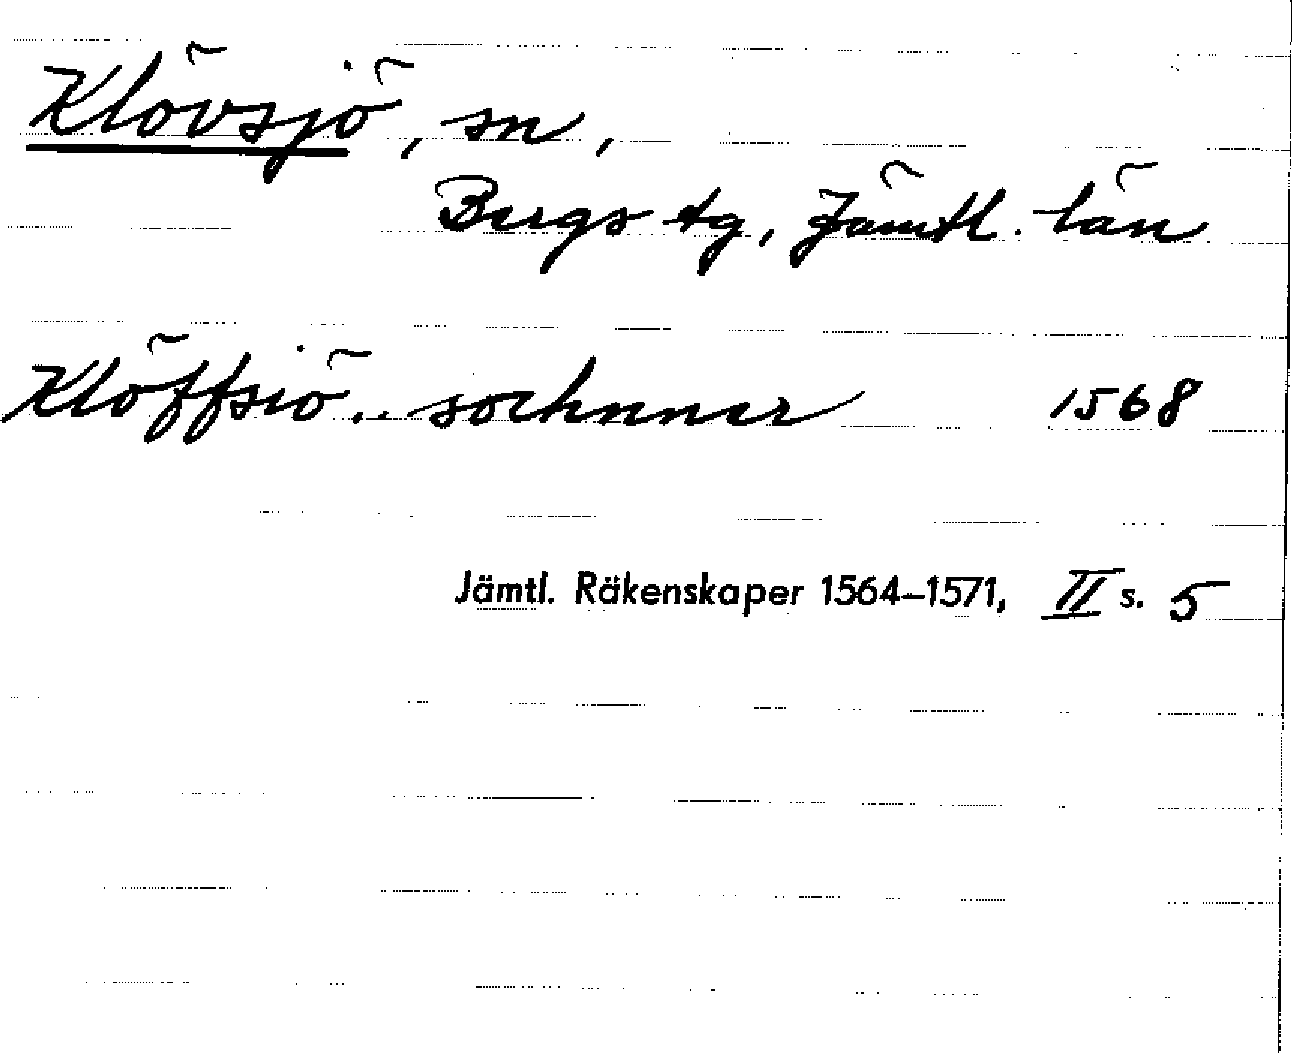 Klövsjö, sn,
Bergs tg, Jämtl. län
Klöffsiö.. sochnner 1568
Jämtl. Räkenskaper 1564–1571, II s. 5